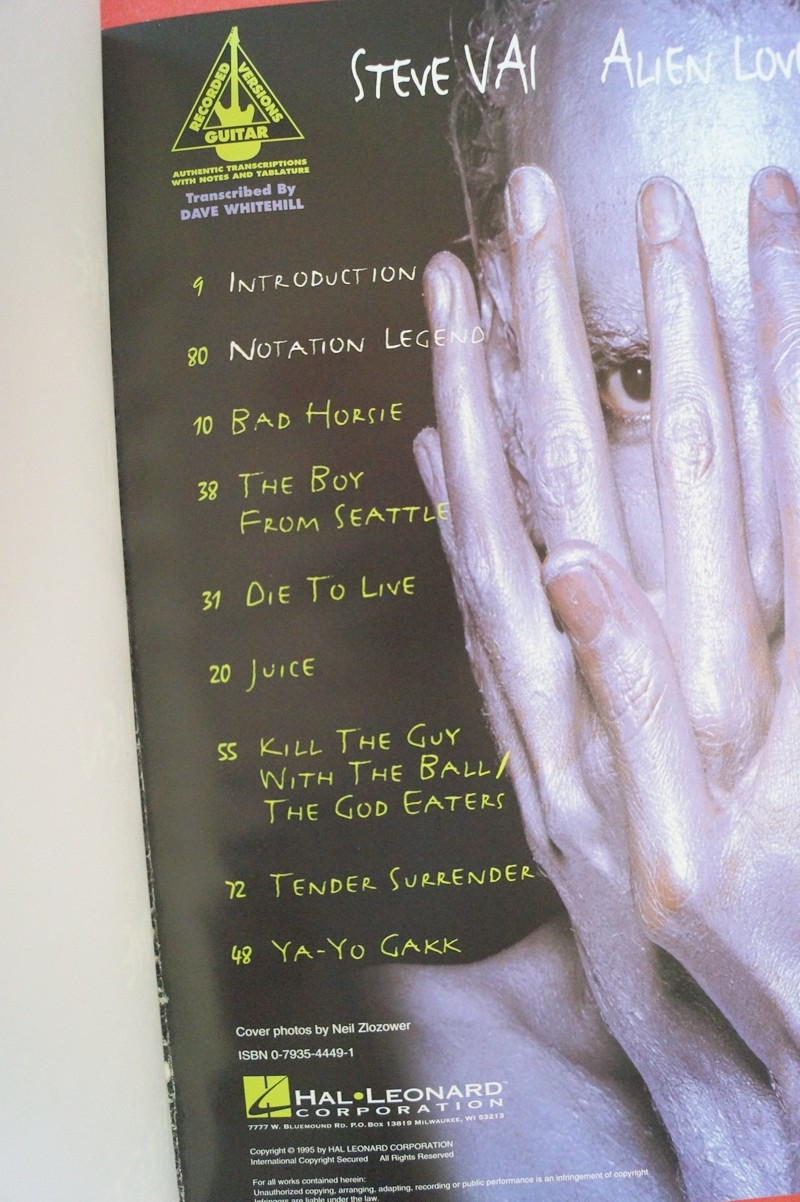 RECORDED VERSIONS
GUITAR
AUTHENTIC TRANSCRIPTIONS
WITH NOTES AND TABLATURE
Transcribed By
DAVE WHITEHILL
STEVE VAI ALIEN LOVE
9 INTRODUCTION
80 NOTATION LEGEND
10 BAD HORSIE
38 THE BOY
FROM SEATTLE
31 DIE TO LIVE
20 JUICE
55 KILL THE GUY
WITH THE BALL/
THE GOD EATERS
72 TENDER SURRENDER
48 YA-YO GAKK
Cover photos by Neil Zlozower
ISBN 0-7935-4449-1
HAL•LEONARD™
CORPORATION
7777 W. BLUEMOUND RD. P.O. BOX 13819 MILWAUKEE, WI 53213
Copyright © 1995 by HAL LEONARD CORPORATION
International Copyright Secured All Rights Reserved
For all works contained herein:
Unauthorized copying, arranging, adapting, recording or public performance is an infringement of copyright.
Infringers are liable under the law.